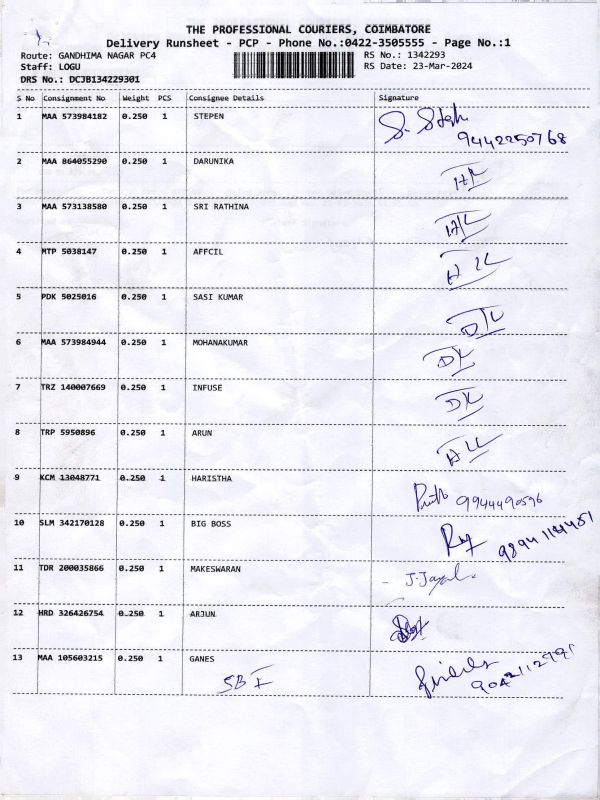 THE PROFESSIONAL COURIERS, COIMBATORE
Delivery Runsheet - PCP - Phone No.:0422-3505555 - Page No.:1
Route: GANDHIMA NAGAR PC4 RS No.: 1342293
Staff: LOGU RS Date: 23-Mar-2024
DRS No.: DCJB134229301
S No Consignment No Weight PCS Consignee Details Signature
1 MAA 573984182 0.250 1 STEPEN
9442250768
2 MAA 864055290 0.250 1 DARUNIKA
3 MAA 573138580 0.250 1 SRI RATHINA
4 MTP 5038147 0.250 1 AFFCIL
5 PDK 5025016 0.250 1 SASI KUMAR
6 MAA 573984944 0.250 1 MOHANAKUMAR
7 TRZ 140007669 0.250 1 INFUSE
8 TRP 5950896 0.250 1 ARUN
9 KCM 13048771 0.250 1 HARISTHA
9944490596
10 SLM 342170128 0.250 1 BIG BOSS
11 TDR 200035866 0.250 1 MAKESWARAN
12 HRD 326426754 0.250 1 ARJUN
13 MAA 105603215 0.250 1 GANES
SB I